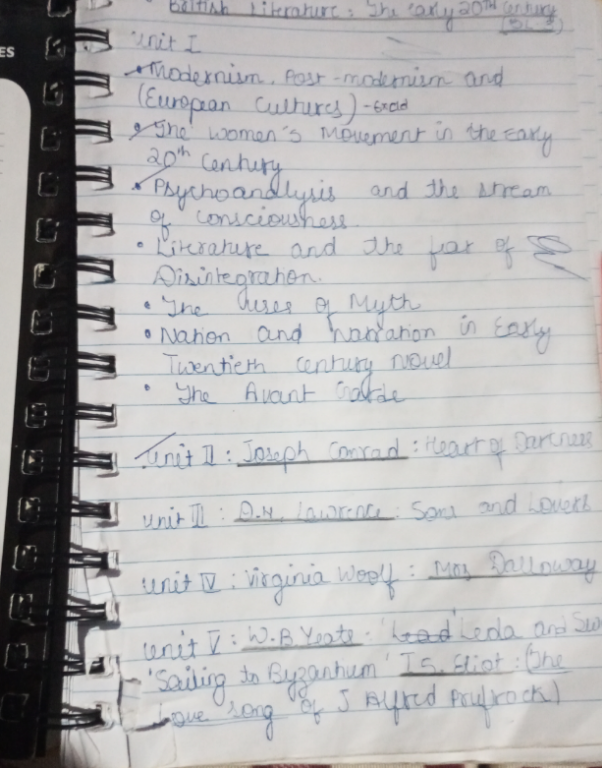 British Literature: The early 20th Century
ES
Unit I
• Modernism, Post-modernism and
(European Cultures)
• The Women's Movement in the Early
20th Century
• Psychoanalysis and the stream
of consciousness.
• Literature and the fear of
Disintegration.
• The uses of Myth
• Nation and narration in Early
Twentieth century novel
• The Avant Garde
Unit II : Joseph Conrad : Heart of Darkness
Unit III : D.H. Lawrence : Sons and Lovers
Unit IV : Virginia Woolf : Mrs Dalloway
Unit V : W.B Yeats : 'Lead' Leda and Sw
'Sailing to Byzantium' T.S. Eliot : (The
Love song of J Alfred Prufrock)